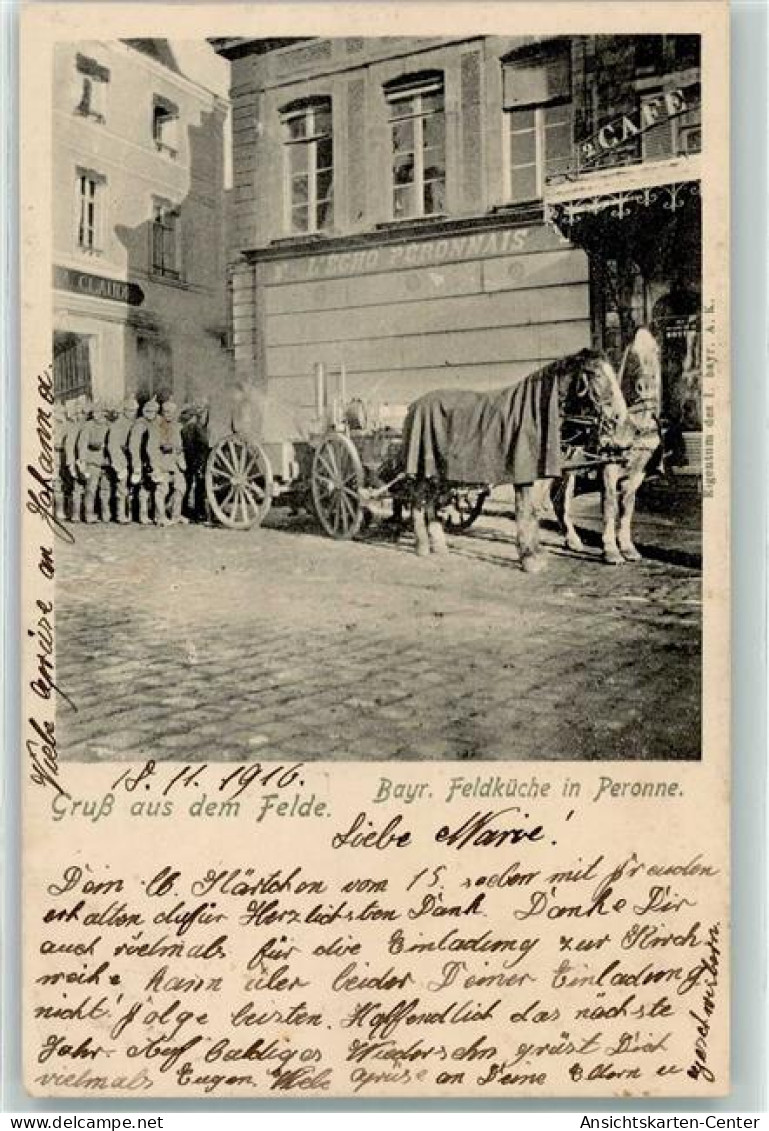 CAFÉ
L'ECHO PERONNAIS
CLAIRE
Eigentum des I. bayr. A. K.
Viele Grüsse an Johanna.
18. 11. 1916.
Gruß aus dem Felde.
Bayr. Feldküche in Peronne.
Liebe Marie!
Dein lb. Kärtchen vom 15. soeben mit Freuden
erhalten dafür Herzlichsten Dank. Danke Dir
auch vielmals für die Einladung zur Kirch
weihe kann über leider Deiner Einladung
nicht! folge leisten. Hoffendlich das nächste
Jahr. Auf baldiges Wiedersehn grüst Dich
vielmals Eugen. Viele Grüse an Deine Eltern u
geschwistern
Ansichtskarten-Center